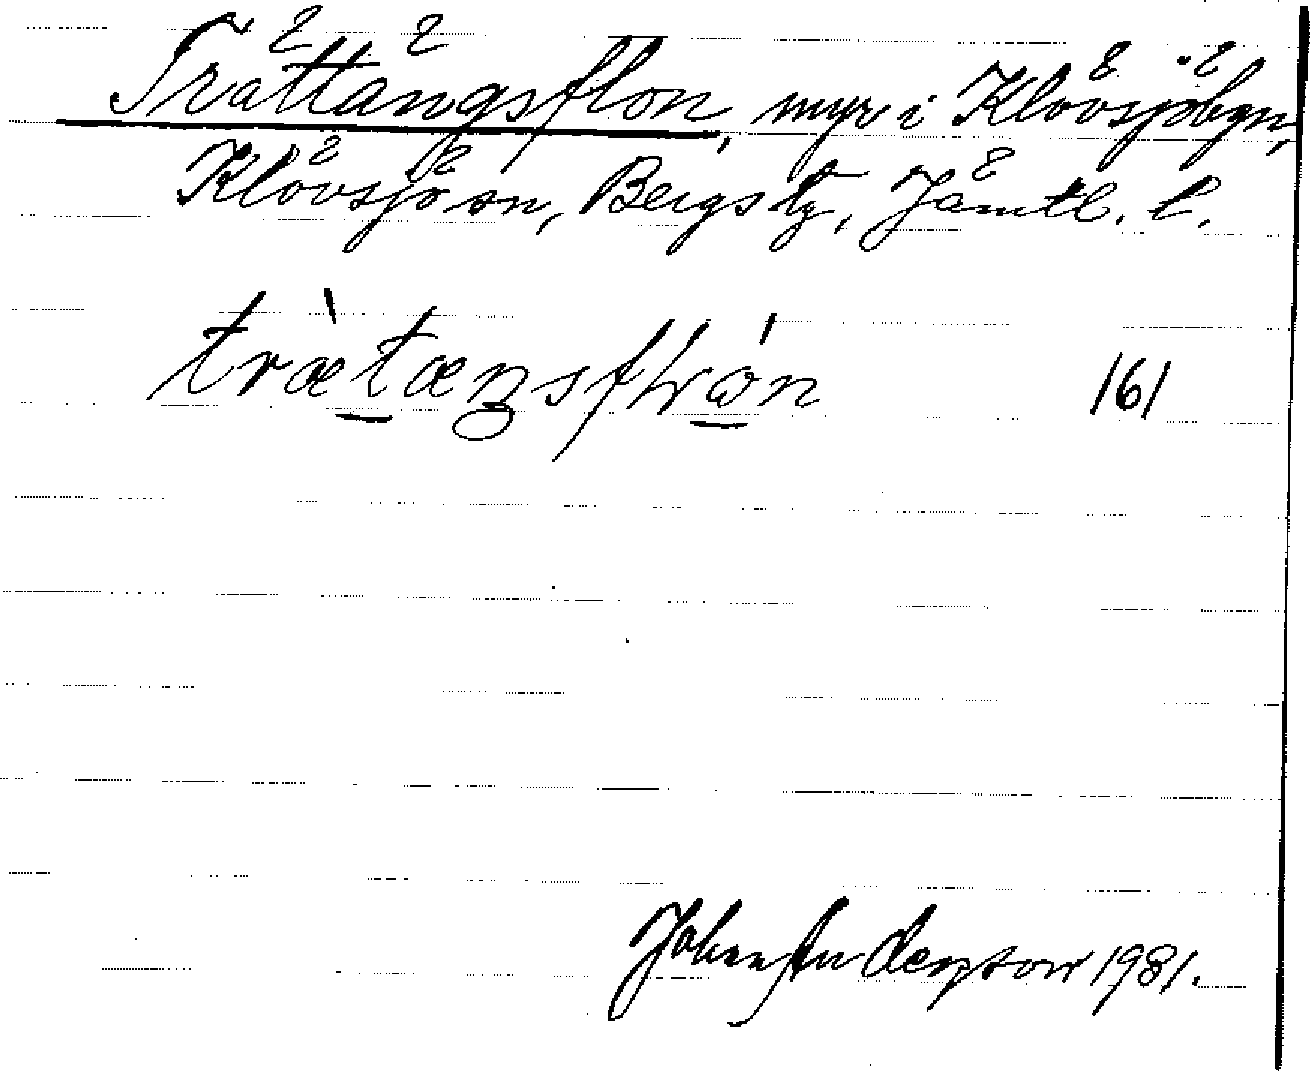 Trättängsflon, myr i Klövsjöbyn,
Klövsjö sn, Bergs tg, Jämtl. l.
træ̀tæŋsfɫɷ́n 161
Johan Anderstorv 1981.